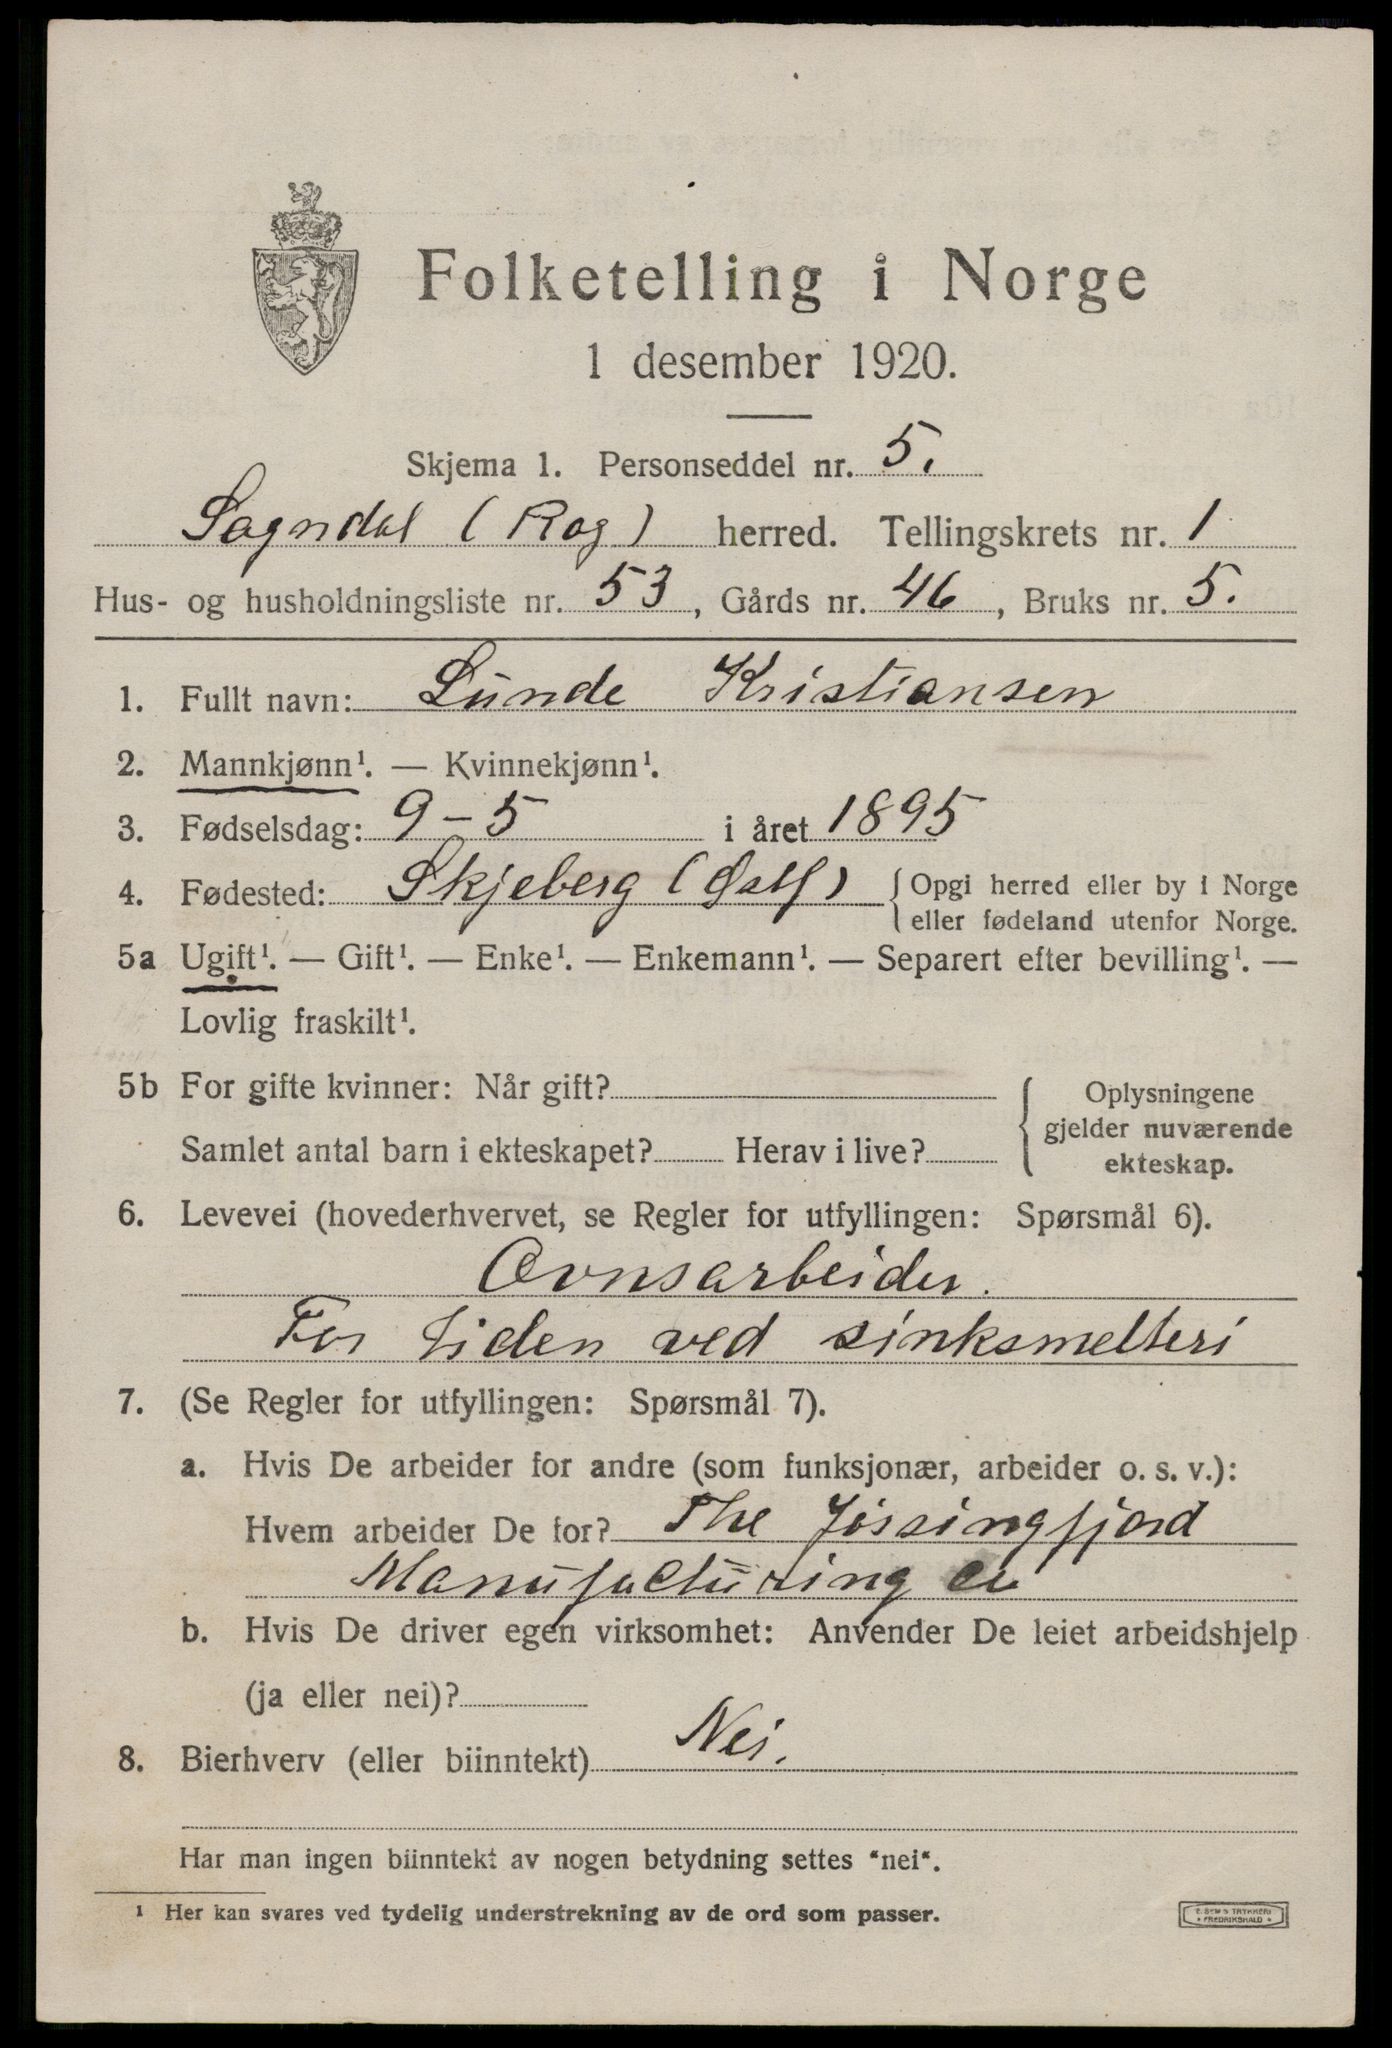 Folketelling i Norge
1 desember 1920.
Skjema 1. Personseddel nr. 5.
Sogndal (Rog) herred. Tellingskrets nr. 1
Hus- og husholdningsliste nr. 53, Gårds nr. 46, Bruks nr. 5.
1. Fullt navn: Lunde Kristiansen
2. Mannkjønn¹. — Kvinnekjønn¹.
3. Fødselsdag: 9-5 i året 1895
4. Fødested: Skjeberg (Østf) { Opgi herred eller by i Norge
eller fødeland utenfor Norge.
5a Ugift¹. — Gift¹. — Enke¹. — Enkemann¹. — Separert efter bevilling¹. —
Lovlig fraskilt¹.
5b For gifte kvinner: Når gift?
Samlet antal barn i ekteskapet? Herav i live?
Oplysningene
gjelder nuværende
ekteskap.
6. Levevei (hovederhvervet, se Regler for utfyllingen: Spørsmål 6).
Ovnsarbeider.
For tiden ved sinksmelteri
7. (Se Regler for utfyllingen: Spørsmål 7).
a. Hvis De arbeider for andre (som funksjonær, arbeider o. s. v.):
Hvem arbeider De for? The Jøssingfjord
Manufacturing Co
b. Hvis De driver egen virksomhet: Anvender De leiet arbeidshjelp
(ja eller nei)?
8. Bierhverv (eller biinntekt) Nei.
Har man ingen biinntekt av nogen betydning settes "nei".
¹ Her kan svares ved tydelig understrekning av de ord som passer.
E. SEM'S TRYKKERI
* FREDRIKSHALD *